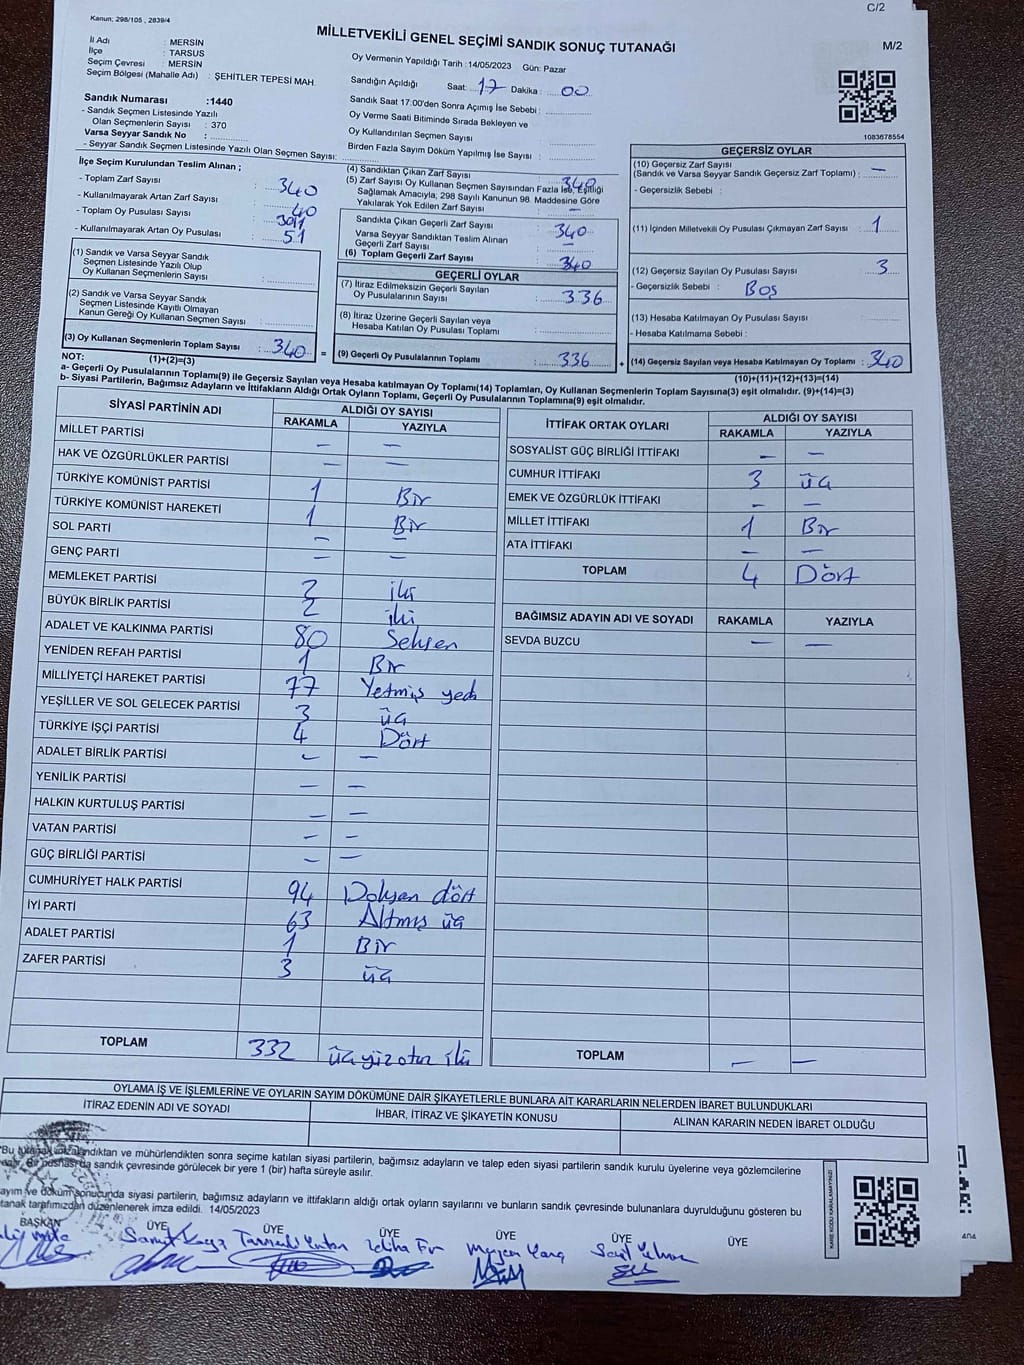 Kanun: 298/105 , 2839/4
C/2
MİLLETVEKİLİ GENEL SEÇİMİ SANDIK SONUÇ TUTANAĞI
M/2
İl Adı : MERSİN
İlçe : TARSUS
Seçim Çevresi : MERSİN
Seçim Bölgesi (Mahalle Adı) : ŞEHİTLER TEPESİ MAH.
Oy Vermenin Yapıldığı Tarih :14/05/2023 Gün: Pazar
Sandığın Açıldığı Saat: 17 Dakika : 00
Sandık Saat 17:00'den Sonra Açımış İse Sebebi :
Oy Verme Saati Bitiminde Sırada Bekleyen ve
Oy Kullandırılan Seçmen Sayısı :
Birden Fazla Sayım Döküm Yapılmış İse Sayısı :
1083678554
Sandık Numarası :1440
- Sandık Seçmen Listesinde Yazılı
Olan Seçmenlerin Sayısı : 370
Varsa Seyyar Sandık No :
- Seyyar Sandık Seçmen Listesinde Yazılı Olan Seçmen Sayısı:
İlçe Seçim Kurulundan Teslim Alınan ;
- Toplam Zarf Sayısı : 340
- Kullanılmayarak Artan Zarf Sayısı : 40
- Toplam Oy Pusulası Sayısı :
- Kullanılmayarak Artan Oy Pusulası : 51
(1) Sandık ve Varsa Seyyar Sandık
Seçmen Listesinde Yazılı Olup
Oy Kullanan Seçmenlerin Sayısı :
(2) Sandık ve Varsa Seyyar Sandık
Seçmen Listesinde Kayıtlı Olmayan
Kanun Gereği Oy Kullanan Seçmen Sayısı :
(3) Oy Kullanan Seçmenlerin Toplam Sayısı : 340 =
(4) Sandıktan Çıkan Zarf Sayısı : 340
(5) Zarf Sayısı Oy Kullanan Seçmen Sayısından Fazla İse, Eşitliği
Sağlamak Amacıyla, 298 Sayılı Kanunun 98. Maddesine Göre
Yakılarak Yok Edilen Zarf Sayısı : –
Sandıkta Çıkan Geçerli Zarf Sayısı : 340
Varsa Seyyar Sandıktan Teslim Alınan
Geçerli Zarf Sayısı : –
(6) Toplam Geçerli Zarf Sayısı : 340
GEÇERLİ OYLAR
(7) İtiraz Edilmeksizin Geçerli Sayılan
Oy Pusulalarının Sayısı : 336
(8) İtiraz Üzerine Geçerli Sayılan veya
Hesaba Katılan Oy Pusulası Toplamı :
(9) Geçerli Oy Pusulalarının Toplamı : 336 +
GEÇERSİZ OYLAR
(10) Geçersiz Zarf Sayısı
(Sandık ve Varsa Seyyar Sandık Geçersiz Zarf Toplamı) : –
- Geçersizlik Sebebi :
(11) İçinden Milletvekili Oy Pusulası Çıkmayan Zarf Sayısı : 1
(12) Geçersiz Sayılan Oy Pusulası Sayısı : 3
- Geçersizlik Sebebi : Boş
(13) Hesaba Katılmayan Oy Pusulası Sayısı :
- Hesaba Katılmama Sebebi :
(14) Geçersiz Sayılan veya Hesaba Katılmayan Oy Toplamı : 340
(10)+(11)+(12)+(13)=(14)
NOT: (1)+(2)=(3)
a- Geçerli Oy Pusulalarının Toplamı(9) ile Geçersiz Sayılan veya Hesaba katılmayan Oy Toplamı(14) Toplamları, Oy Kullanan Seçmenlerin Toplam Sayısına(3) eşit olmalıdır. (9)+(14)=(3)
b- Siyasi Partilerin, Bağımsız Adayların ve İttifakların Aldığı Ortak Oyların Toplamı, Geçerli Oy Pusulalarının Toplamına(9) eşit olmalıdır.
SİYASİ PARTİNİN ADI ALDIĞI OY SAYISI
RAKAMLA YAZIYLA
MİLLET PARTİSİ – –
HAK VE ÖZGÜRLÜKLER PARTİSİ – –
TÜRKİYE KOMÜNİST PARTİSİ 1 Bir
TÜRKİYE KOMÜNİST HAREKETİ 1 Bir
SOL PARTİ – –
GENÇ PARTİ – –
MEMLEKET PARTİSİ 2 iki
BÜYÜK BİRLİK PARTİSİ 2 iki
ADALET VE KALKINMA PARTİSİ 80 Seksen
YENİDEN REFAH PARTİSİ 1 Bir
MİLLİYETÇİ HAREKET PARTİSİ 77 Yetmiş yedi
YEŞİLLER VE SOL GELECEK PARTİSİ 3 üç
TÜRKİYE İŞÇİ PARTİSİ 4 Dört
ADALET BİRLİK PARTİSİ – –
YENİLİK PARTİSİ – –
HALKIN KURTULUŞ PARTİSİ – –
VATAN PARTİSİ – –
GÜÇ BİRLİĞİ PARTİSİ – –
CUMHURİYET HALK PARTİSİ 94 Doksan dört
İYİ PARTİ 63 Altmış üç
ADALET PARTİSİ 1 Bir
ZAFER PARTİSİ 3 üç
TOPLAM 332 üçyüzotuz iki
İTTİFAK ORTAK OYLARI ALDIĞI OY SAYISI
RAKAMLA YAZIYLA
SOSYALİST GÜÇ BİRLİĞİ İTTİFAKI – –
CUMHUR İTTİFAKI 3 üç
EMEK VE ÖZGÜRLÜK İTTİFAKI – –
MİLLET İTTİFAKI 1 Bir
ATA İTTİFAKI – –
TOPLAM 4 Dört
BAĞIMSIZ ADAYIN ADI VE SOYADI RAKAMLA YAZIYLA
SEVDA BUZCU – –
TOPLAM – –
OYLAMA İŞ VE İŞLEMLERİNE VE OYLARIN SAYIM DÖKÜMÜNE DAİR ŞİKAYETLERLE BUNLARA AİT KARARLARIN NELERDEN İBARET BULUNDUKLARI
İTİRAZ EDENİN ADI VE SOYADI İHBAR, İTİRAZ VE ŞİKAYETİN KONUSU ALINAN KARARIN NEDEN İBARET OLDUĞU
ve mühürlendikten sonra seçime katılan siyasi partilerin, bağımsız adayların ve talep eden siyasi partilerin sandık kurulu üyelerine veya gözlemcilerine
sandık çevresinde görülecek bir yere 1 (bir) hafta süreyle asılır.
ayım ve döküm sonucunda siyasi partilerin, bağımsız adayların ve ittifakların aldığı ortak oyların sayılarını ve bunların sandık çevresinde bulunanlara duyrulduğunu gösteren bu
tanak tarafımızdan düzenlenerek imza edildi. 14/05/2023
BAŞKAN ÜYE ÜYE ÜYE ÜYE ÜYE ÜYE
KARE KODU KARALAMAYINIZ!